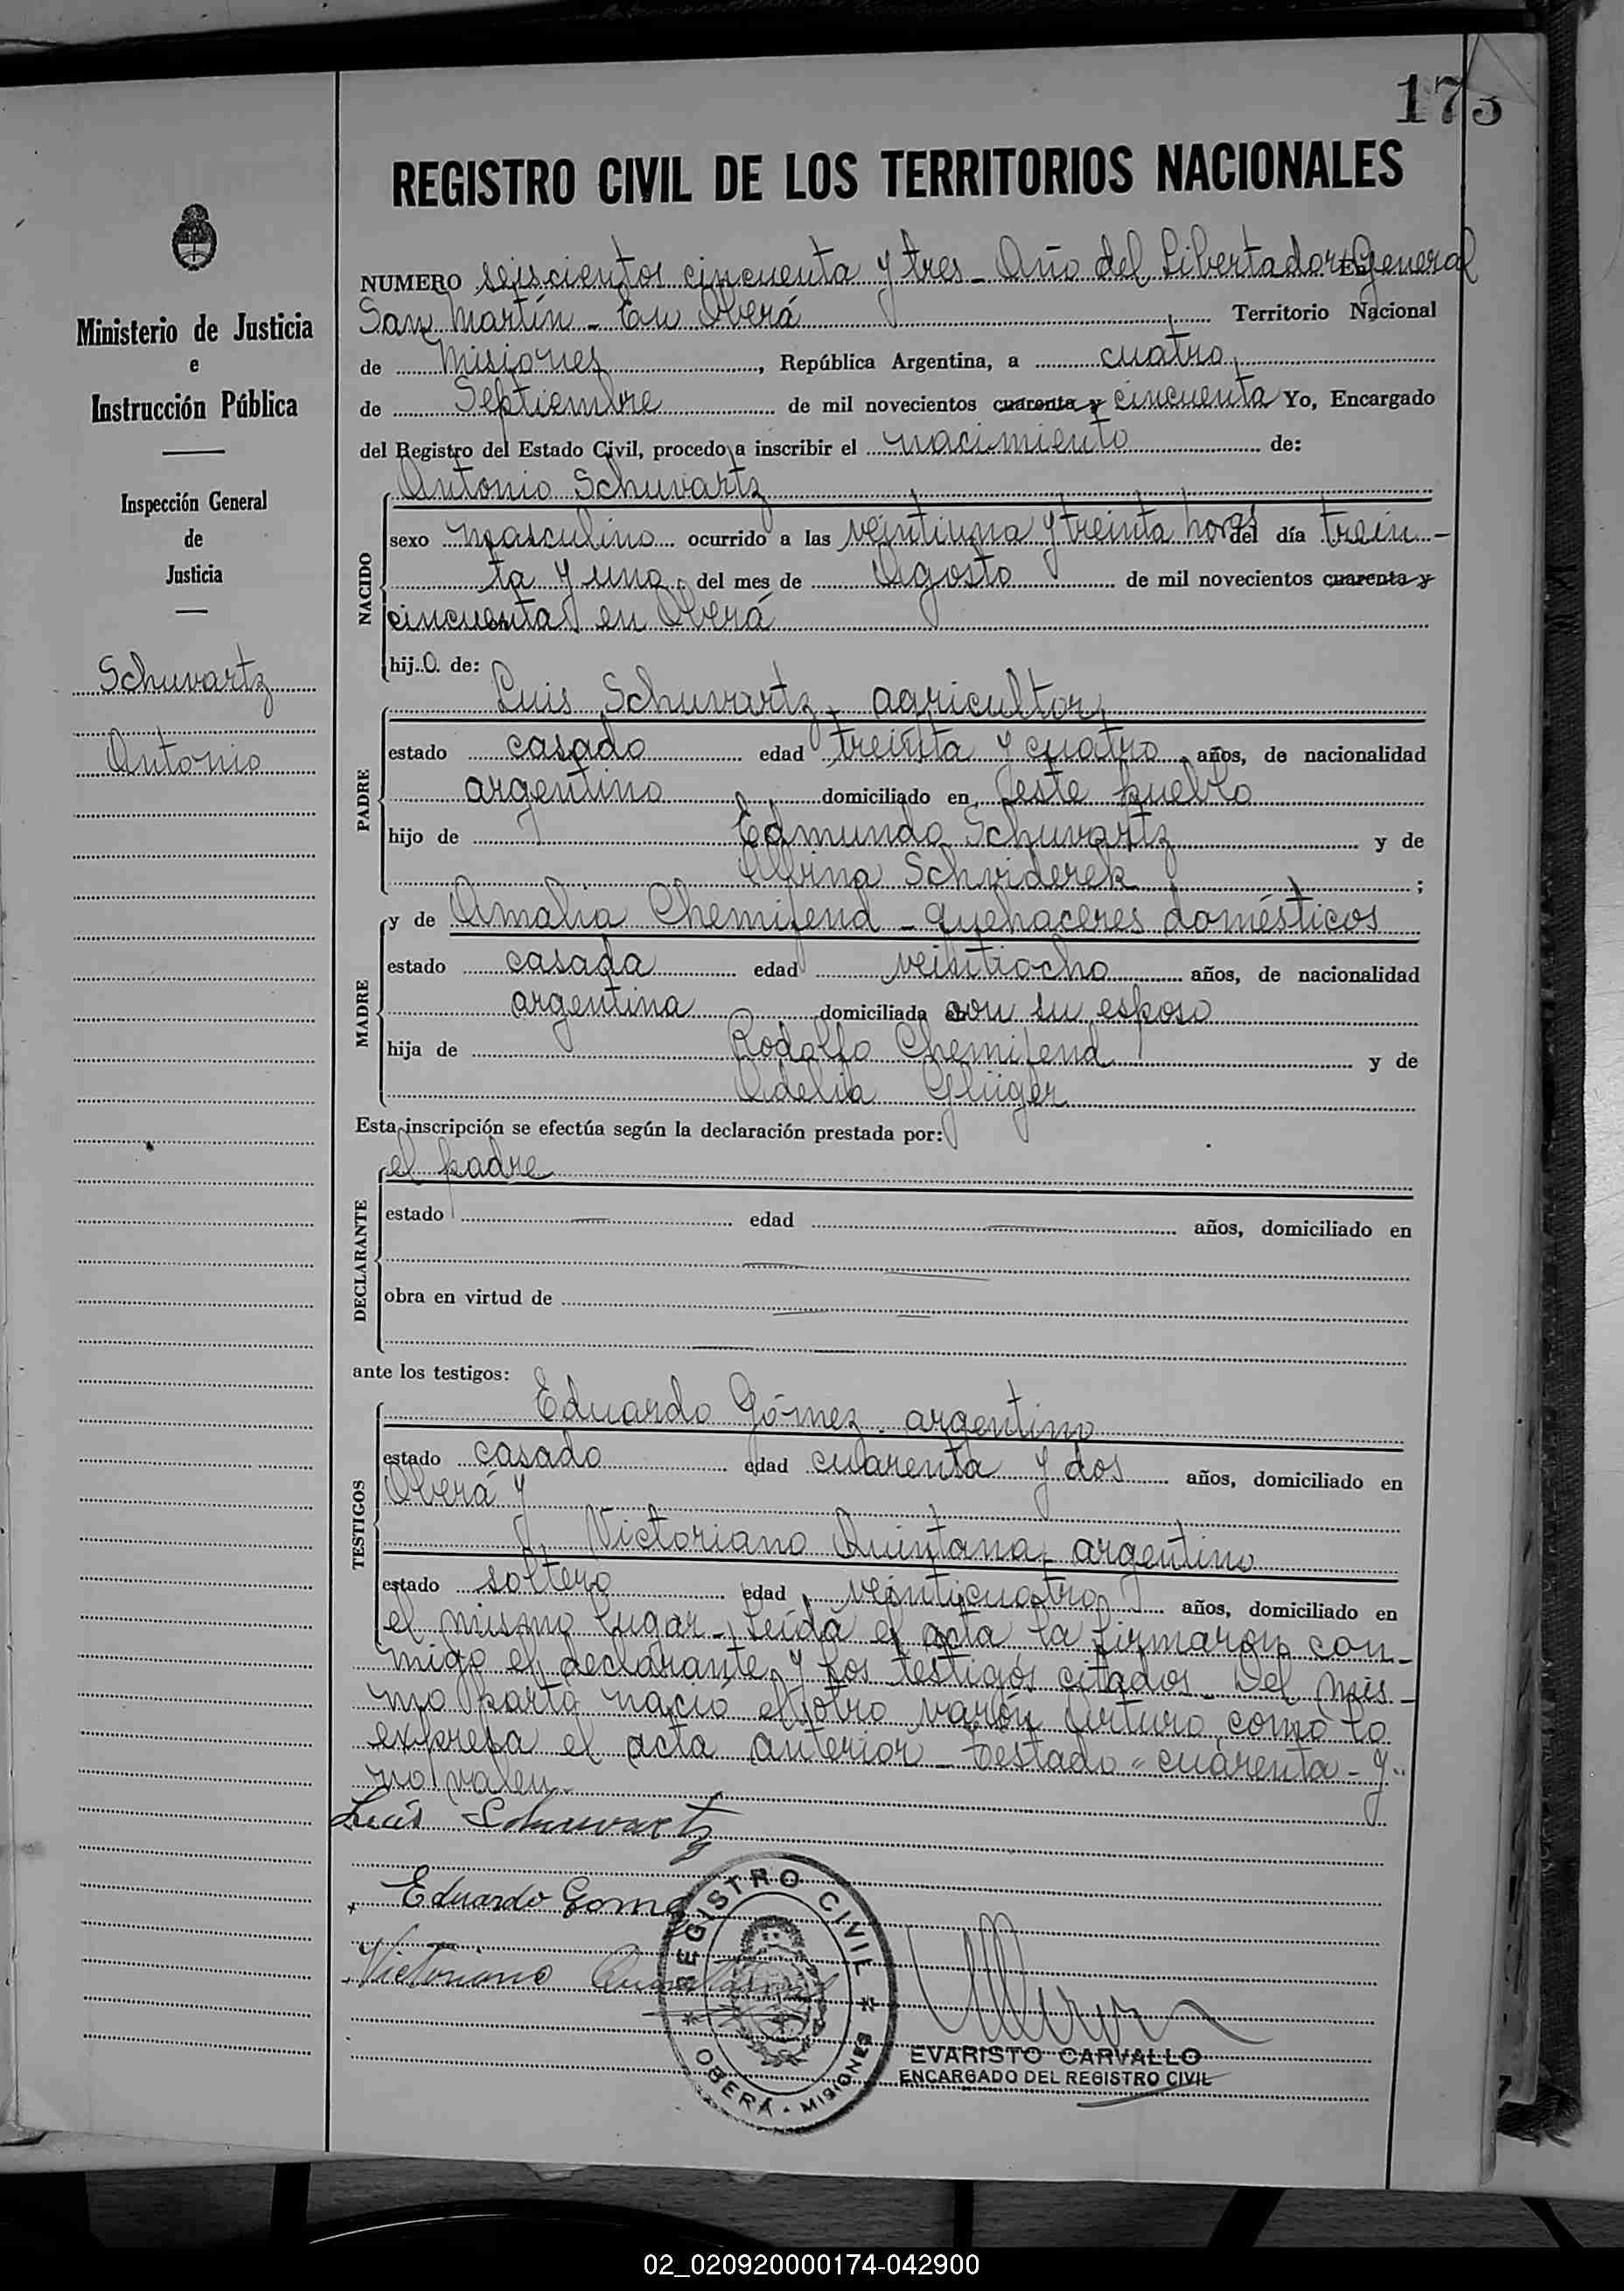 173
REGISTRO CIVIL DE LOS TERRITORIOS NACIONALES
Ministerio de Justicia
e
Instrucción Pública
Inspección General
de
Justicia
Schuvartz
Antonio
NUMERO seiscientos cincuenta y tres - Año del Libertador General
San Martín - En Oberá Territorio Nacional
de Misiones, República Argentina, a cuatro
de Septiembre de mil novecientos cuarenta y cincuenta Yo, Encargado
del Registro del Estado Civil, procedo a inscribir el nacimiento de:
Antonio Schuvartz
NACIDO
sexo masculino ocurrido a las veintiuna y treinta horas del día trein-
ta y uno del mes de Agosto de mil novecientos cuarenta y
cincuenta en Oberá
hijo de:
Luis Schuvartz, agricultor,
PADRE
estado casado edad treinta y cuatro años, de nacionalidad
argentino domiciliado en este pueblo
hijo de Edmundo Schuvartz y de
Albina Schviderek ;
MADRE
y de Amalia Chemifend - quehaceres domésticos
estado casada edad veintiocho años, de nacionalidad
argentina domiciliada con su esposo
hija de Rodolfo Chemifend y de
Adelia Glüger
Esta inscripción se efectúa según la declaración prestada por:
el padre
DECLARANTE
estado edad años, domiciliado en
obra en virtud de
ante los testigos:
TESTIGOS
Eduardo Gómez argentino
estado casado edad cuarenta y dos años, domiciliado en
Oberá y
Victoriano Quintana, argentino
estado soltero edad veinticuatro años, domiciliado en
el mismo lugar - Leída el acta la firmaron con-
migo el declarante y los testigos citados - Del mis-
mo parto nació el otro varón Arturo, como lo
expresa el acta anterior - Testado "cuarenta - y"
no valen -
Luis Schuvartz
Eduardo Gomez
Victoriano Quintana
REGISTRO CIVIL
OBERÁ - MISIONES
EVARISTO CARVALLO
ENCARGADO DEL REGISTRO CIVIL
02_020920000174-042900